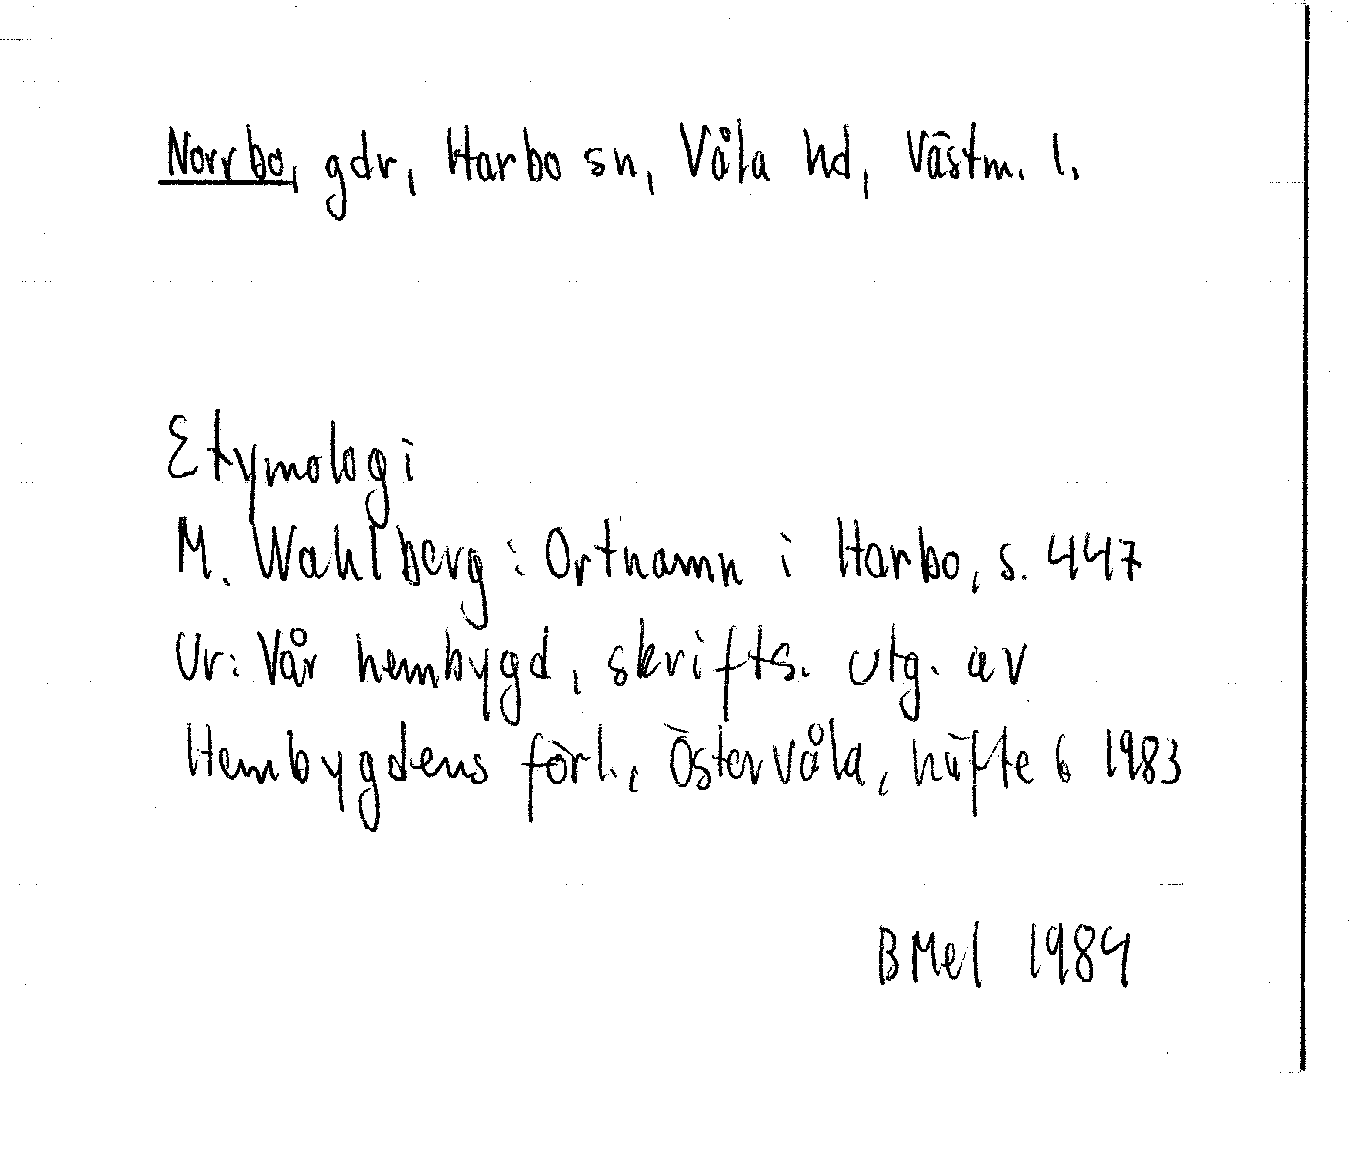 Norrbo, gdr, Harbo sn, Våla hd, Västm. l.
Etymologi
M. Wahlberg: Ortnamn i Harbo, s. 447
Ur: Vår hembygd, skrifts. utg. av
Hembygdens förl., Östervåla, häfte 6 1983
B Mel 1984